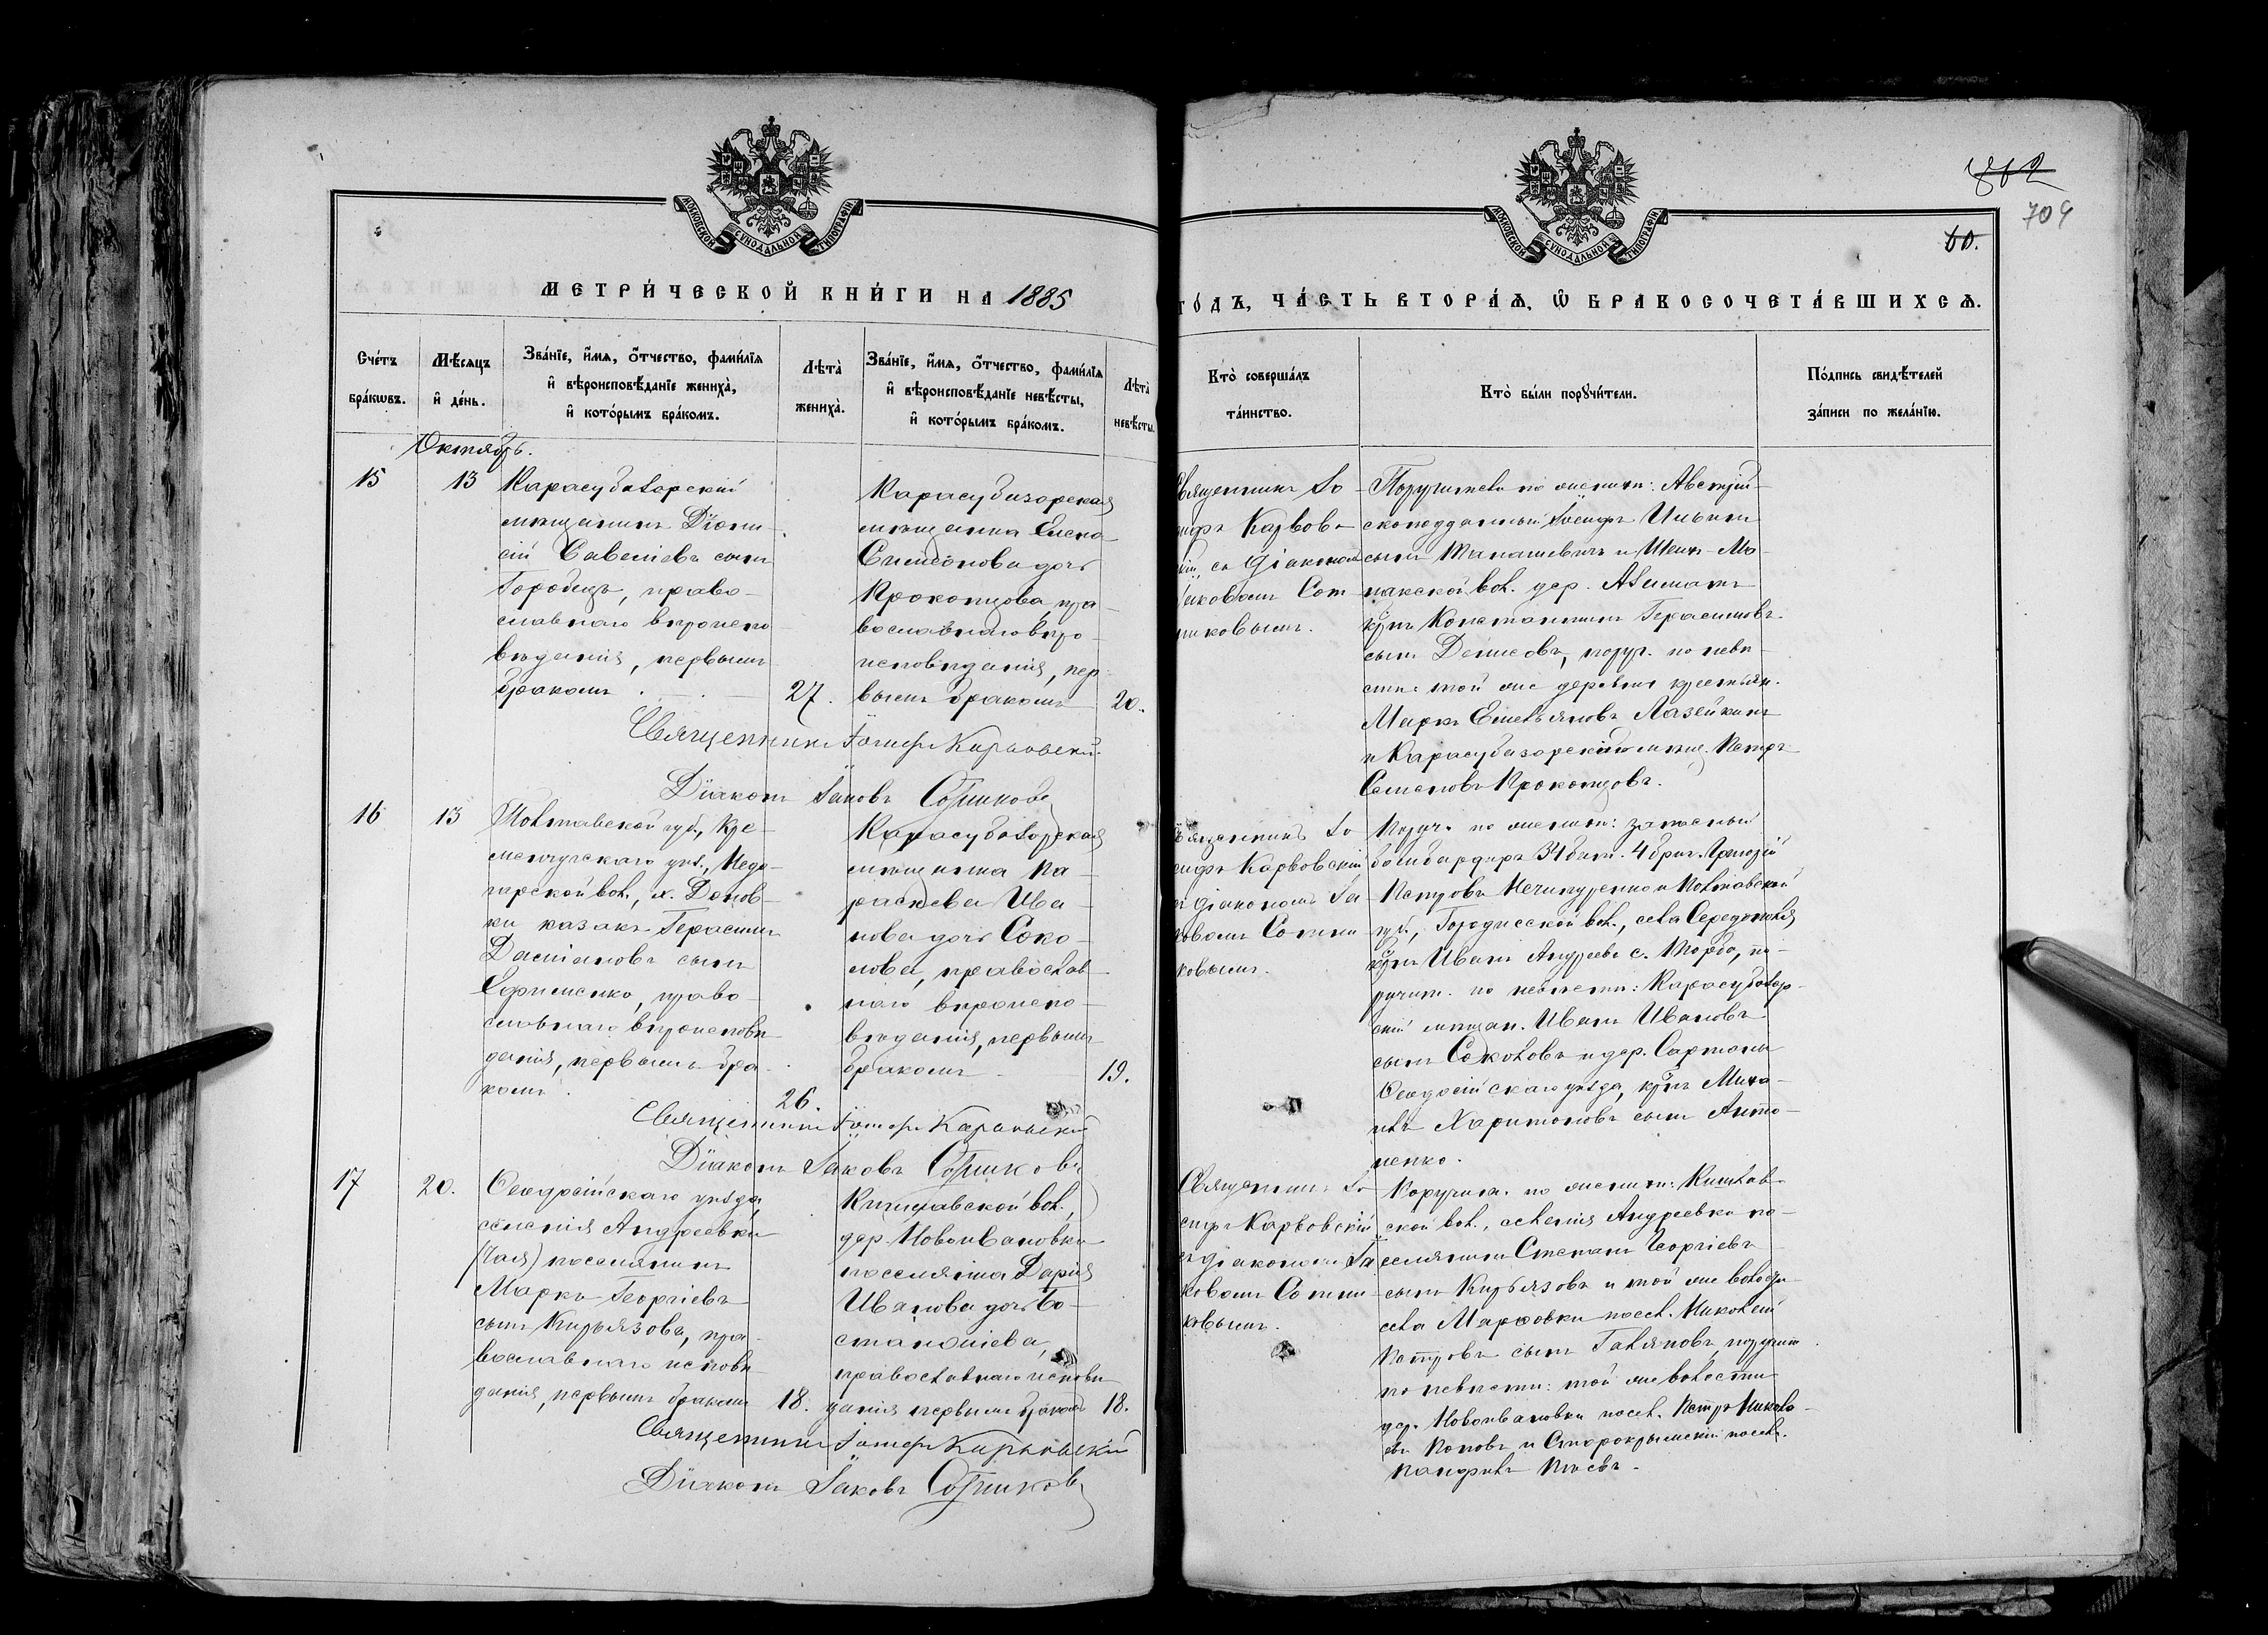 МОСКОВСКОЙ СѴНОДАЛЬНОЙ ТИПОГРАФІИ
МОСКОВСКОЙ СѴНОДАЛЬНОЙ ТИПОГРАФІИ
862
709
60.
МЕТРИ́ЧЕСКОЙ КНИ́ГИ НА 1885
ГО́ДЪ, ЧА́СТЬ ВТОРА́Ѧ, Ѿ БРАКОСОЧЕТА́ВШИХСѦ.
Сче́тъ
бра́кѡвъ.
Мѣ́сяцъ
и҆ де́нь.
Зва́нїе, и҆́мѧ, ѻ҆́тчество, фами́лїѧ
и҆ вѣроисповѣ́данїе жениха̀,
и҆ кото́рымъ бра́комъ.
Лѣта̀
жениха̀.
Зва́нїе, и҆́мѧ, ѻ҆́тчество, фами́лїѧ
и҆ вѣроисповѣ́данїе невѣ́сты,
и҆ кото́рымъ бра́комъ.
Лѣта̀
невѣ́сты.
Кто̀ соверша́лъ
та́инство.
Кто̀ бы́ли порꙋчи́тели.
По́дпись свидѣ́телей
за́писи по жела́нїю.
Октябрь.
15
13
Карасубазарскій
мѣщанинъ Діони-
сій Савеліевъ сынъ
Городецъ, право-
славнаго вѣроиспо-
вѣданія, первымъ
бракомъ
27.
Карасубазарская
мѣщанка Елена
Симеонова дочь
Прокопцова, пра-
вославнаго вѣро-
исповѣданія, пер-
вымъ бракомъ
20.
Священникъ Іо-
сифъ Карвовс-
кій съ діакономъ
Іаковомъ Сот-
никовымъ.
Поручители по женихѣ: Австрій-
скоподданный Іосифъ Ильинъ
сынъ Танашевичъ и Шейх-Мо-
накской вол. дер. Азаматъ
кр-нъ Константинъ Герасимовъ
сынъ Денисовъ, поруч. по невѣ-
стѣ: той же деревни крестьян.
Маркъ Емельяновъ Лазейкинъ
и Карасубазарскій мѣщ. Петръ
Семеновъ Прокопцовъ.
Священникъ Іосифъ Карвовскій
Діаконъ Іаковъ Сотниковъ
16
13
Полтавской губ., Кре-
менчугскаго уѣз., Недо-
гарской вол., х. Демов-
ки казакъ Герасимъ
Даміановъ сынъ
Ефименко, право-
славнаго вѣроисповѣ-
данія, первымъ бра-
комъ
26.
Карасубазарская
мѣщанка Па-
раскева Ива-
нова дочь Соко-
лова, православ-
наго вѣроиспо-
вѣданія, первымъ
бракомъ
19.
Священникъ Іо-
сифъ Карвовскій
съ діакономъ Іа-
ковомъ Сотни-
ковымъ.
Поруч. по женихѣ: запасный
бомбардиръ 34 бат. 4 бриг.
Петровъ Нечипуренко и Полтавской
губ., Городисской вол., села Середополья
кр-нъ Иванъ Андреевъ с. Торба, по-
ручит. по невѣстѣ: Карасубазар-
скій мѣщан. Иванъ Ивановъ
сынъ Соколовъ и дер. Сартаны
Ѳеодосійскаго уѣзда, кр-нъ Миха-
илъ Харитоновъ сынъ Анто-
ненко.
Священникъ Іосифъ Карвовскій
Діаконъ Іаковъ Сотниковъ
17
20.
Ѳеодосійскаго уѣзда,
селенія Андреевки
поселянинъ
Маркъ Георгіевъ
сынъ Кирьязовъ, пра-
вославнаго исповѣ-
данія, первымъ бракомъ
18.
Кишлавской вол.,
дер. Новоивановки
поселянка Дарія
Иванова дочь Бо-
станжіева,
православнаго исповѣ-
данія первымъ бракомъ
18.
Священникъ Іо-
сифъ Карвовскій
съ діакономъ Іа-
ковомъ Сотни-
ковымъ.
Поручит. по женихѣ: Кишлав-
ской вол., селенія Андреевки по-
селянинъ Степанъ Георгіевъ
сынъ Кирьязовъ и той же волости
села Марфовки посел. Николай
Петровъ сынъ поручит.
по невѣстѣ: той же волости
дер. Новоивановки посел. Петръ Никола-
евъ Поповъ и Старокрымскій посел.
Священникъ Іосифъ Карвовскій
Діаконъ Іаковъ Сотниковъ